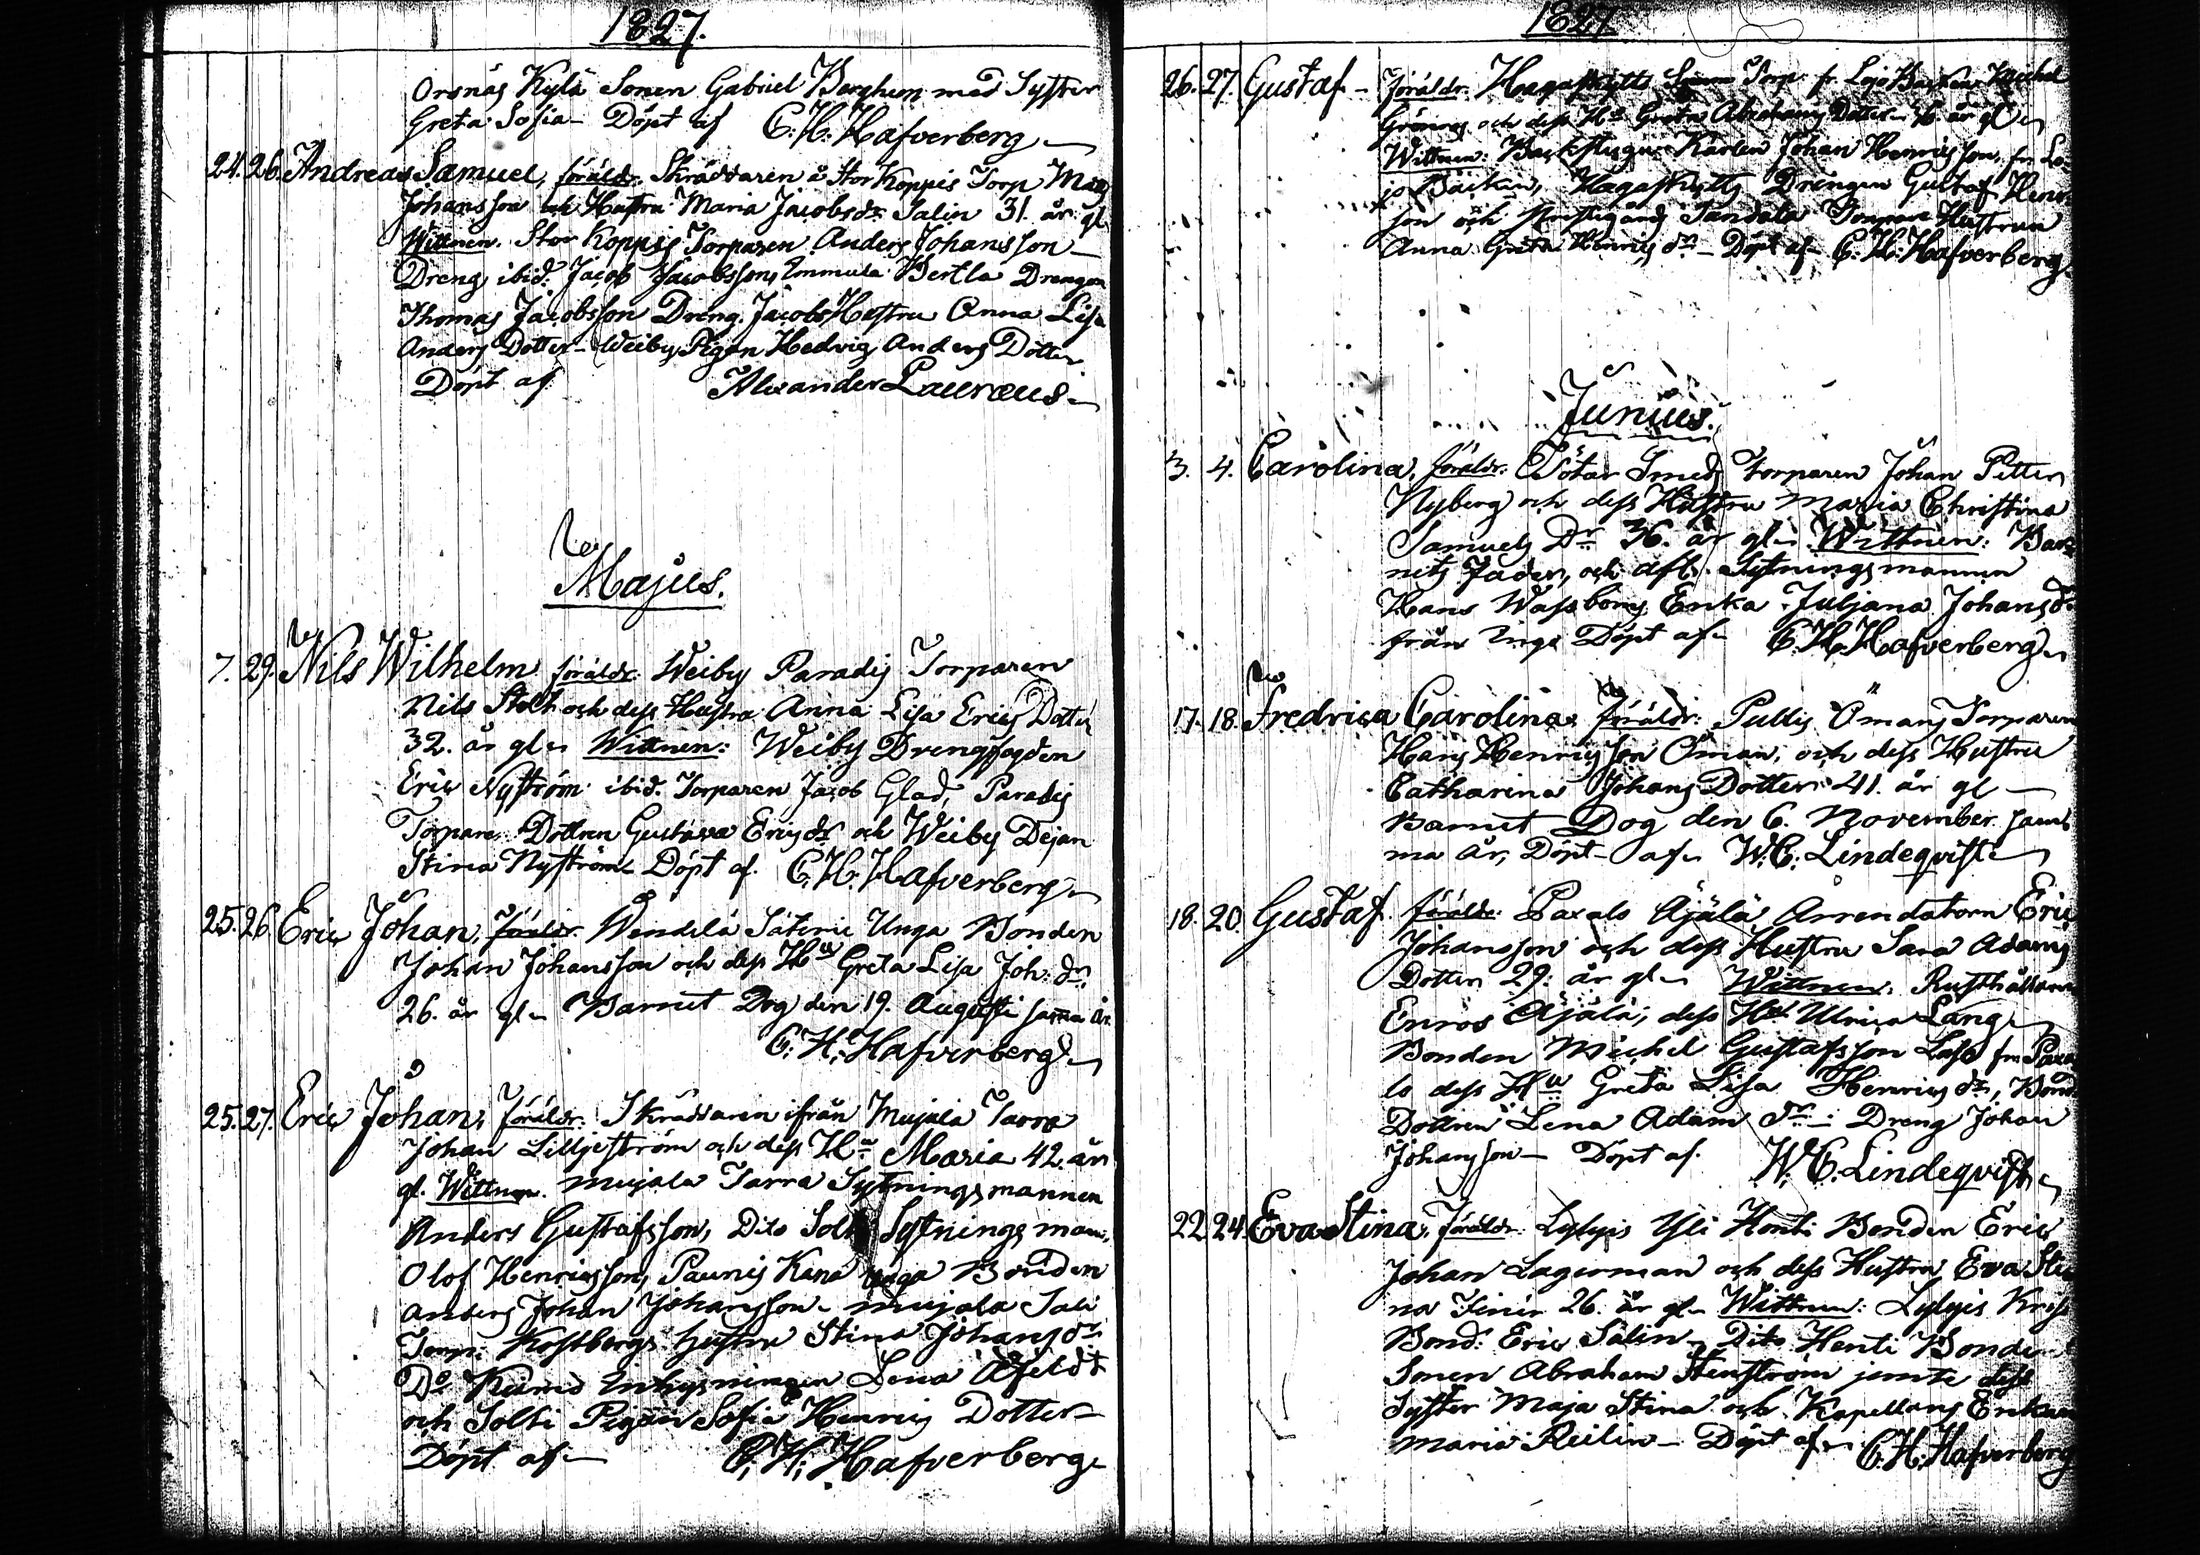 1827.
Orsnäs Kylä Sonen Gabriel Berghem med Syster
Greta Sofia – Döpt af C. H. Hafverberg
24. 26. Andreas Samuel, föräldr. Skräddaren å Stor Koppis Torp
Johansson och Hustru Maria Jacobsdr Salin 31. år gl
Wittnen. Stor Koppis Torparen Anders Johansson –
Dreng ibid. Jacob Jacobsson, Bertla Drengen
Thomas Jacobsson Dreng. Jacobs Hustru Anna Lisa
Anders Dotter – Weiby Pigan Hedvig Anders Dotter
Döpt af Alexander Lauræus –
Majus.
7. 29. Nils Wilhelm föräldr. Weiby Paradis Torparen
Nils Stolt och dess Hustru Anna Lisa Erics Dotter
32. år gl – Wittnen: Weiby Drengsfogden
Eric Nyström ibid. Torparen Jacob Glad, Paradis
Torpare Dottren Gustava Ericsdr och Weiby Dejan
Stina Nyström – Döpt af. C. H. Hafverberg –
25. 26. Eric Johan, föräldr. Wendelä Säteri Unga Bonden
Johan Johansson och dess Hu Greta Lisa Joh. dr.
26. år gl – Barnet Dog den 19. Augusti samma år.
C. H. Hafverberg –
25. 27. Eric Johan, föräldr. Skräddaren ifrån Mujala Tarra
Johan Liljeström och dess Hu Maria 42. år
gl. Wittnen. Mujala Tarra Sytningsmannen
Anders Gustafsson, Dito Solt Sytnings man,
Olof Henricsson, Paunis Bonden
Anders Johan Johansson – Mujala
Torp. Hustru Stina Johans dr
Do Lena
och Solti Pigan Sofia Henrics Dotter –
Döpt af – C. H. Hafverberg –
1827.
26. 27. Gustaf – föräldr. Torp. fr. Lojo Backan Michel
och dess Hu Greta Abrahams Dotter 46. år gl –
Wittnen: Backstugu Karlen Johan Henricsson, fr. Lo-
jo Backan, Drengen Gustaf Henr
son och Hustrun
Anna Greta Henrics dr – Döpt af – C. H. Hafverberg
Junius.
3. 4. Carolina, föräldr. Smeds Torparen Johan Petter
Nyberg och dess Hustru Maria Christina
Samuels Dr 36. år gl – Wittnen: Bar-
nets Fader, och afl. Sytningsmannen
Hans Erika Juljana Johansdr
från Inga Döpt af – C. H. Hafverberg –
17. 18. Fredrica Carolina, föräldr: Pullis Ömans Torparen
Hans Henricsson Öman, och dess Hustru
Catharina Johans Dotter 41. år gl –
Barnet Dog den 6. November sam-
ma år, Döpt – af – W. C. Lindeqvist –
18. 20. Gustaf. föräldr: Äjälä Arrendatorn Eric
Johansson och dess Hustru Sara Adams
Dotter 29. år gl – Wittnen. Rusthållaren
Enros Äjälä, dess Hu Ulrica Lang
Bonden Michel Gustafsson fr.
lo dess Hu Greta Lisa Henrics dr, Bond
Dottren Lena Adam dr – Dreng Johan
Johansson – Döpt af. W. C. Lindeqvist –
22. 24. Eva Stina, föräldr. Lylyis Yli Honti Bonden Eric
Johan Lagerman och dess Hustru Eva Sti-
na 26. år gl – Wittnen: Lylyis
Bond. Eric Salin, Dito Henti Bonde
Sonen Abraham Stenström jemte dess
Syster Maja Stina och Kapellans Enkan
Maria Reilin – Döpt af – C. H. Hafverberg